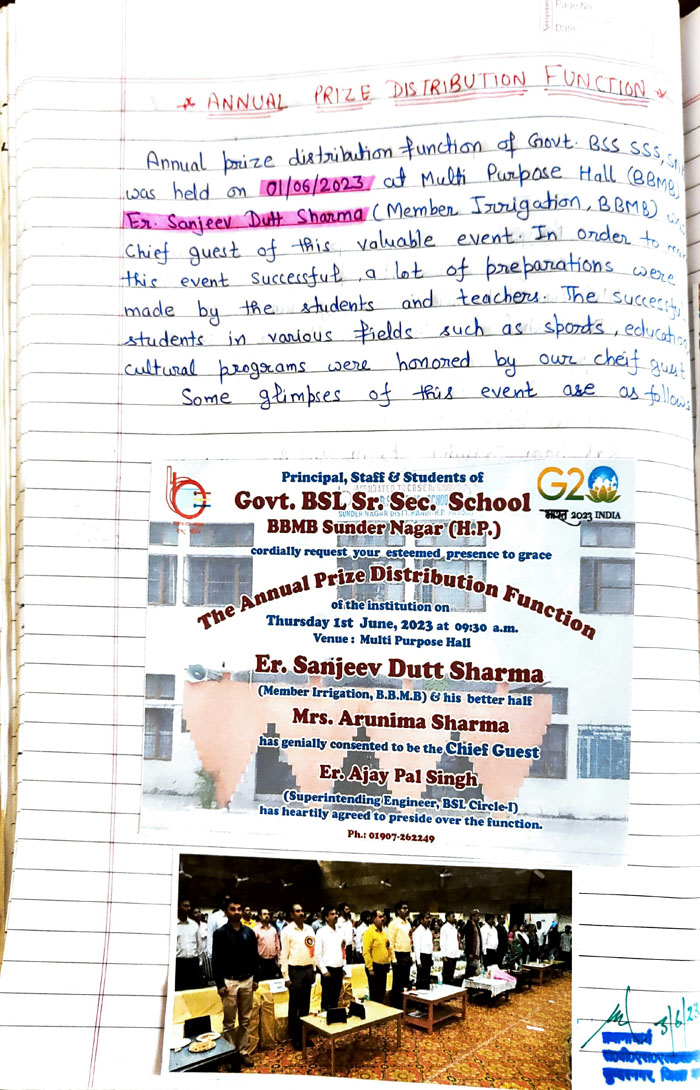 Page No.
Date
* ANNUAL PRIZE DISTRIBUTION FUNCTION *
Annual prize distribution function of Govt. BSS SSS,
was held on 01/06/2023 at Multi Purpose Hall (BBMB)
Er. Sanjeev Dutt Sharma (Member Irrigation, BBMB)
Chief guest of this valuable event. In order to
this event successful, a lot of preparations were
made by the students and teachers. The successful
students in various fields such as sports, education
cultural programs were honored by our cheif guest
Some glimpses of this event are as follows
Principal, Staff & Students of
Govt. BSL Sr. Sec. School
BBMB Sunder Nagar (H.P.)
G20
भारत 2023 INDIA
cordially request your esteemed presence to grace
The Annual Prize Distribution Function
of the institution on
Thursday 1st June, 2023 at 09:30 a.m.
Venue : Multi Purpose Hall
Er. Sanjeev Dutt Sharma
(Member Irrigation, B.B.M.B) & his better half
Mrs. Arunima Sharma
has genially consented to be the Chief Guest
Er. Ajay Pal Singh
(Superintending Engineer, BSL Circle-I)
has heartily agreed to preside over the function.
Ph.: 01907-262249
3/6/23